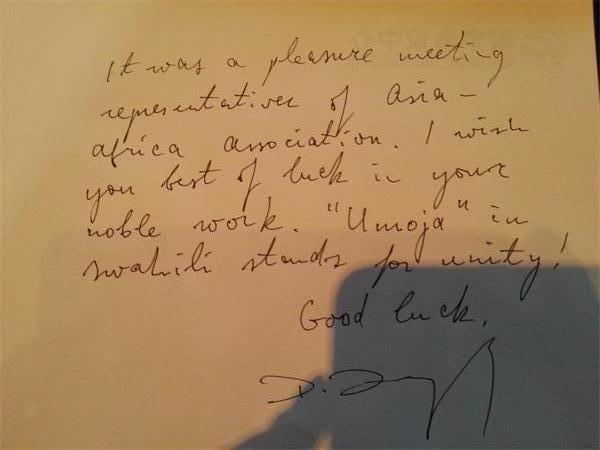 It was a pleasure meeting
representatives of Asia-
africa association. I wish
you best of luck in your
noble work. "Umoja" in
swahili stands for unity!
Good luck.